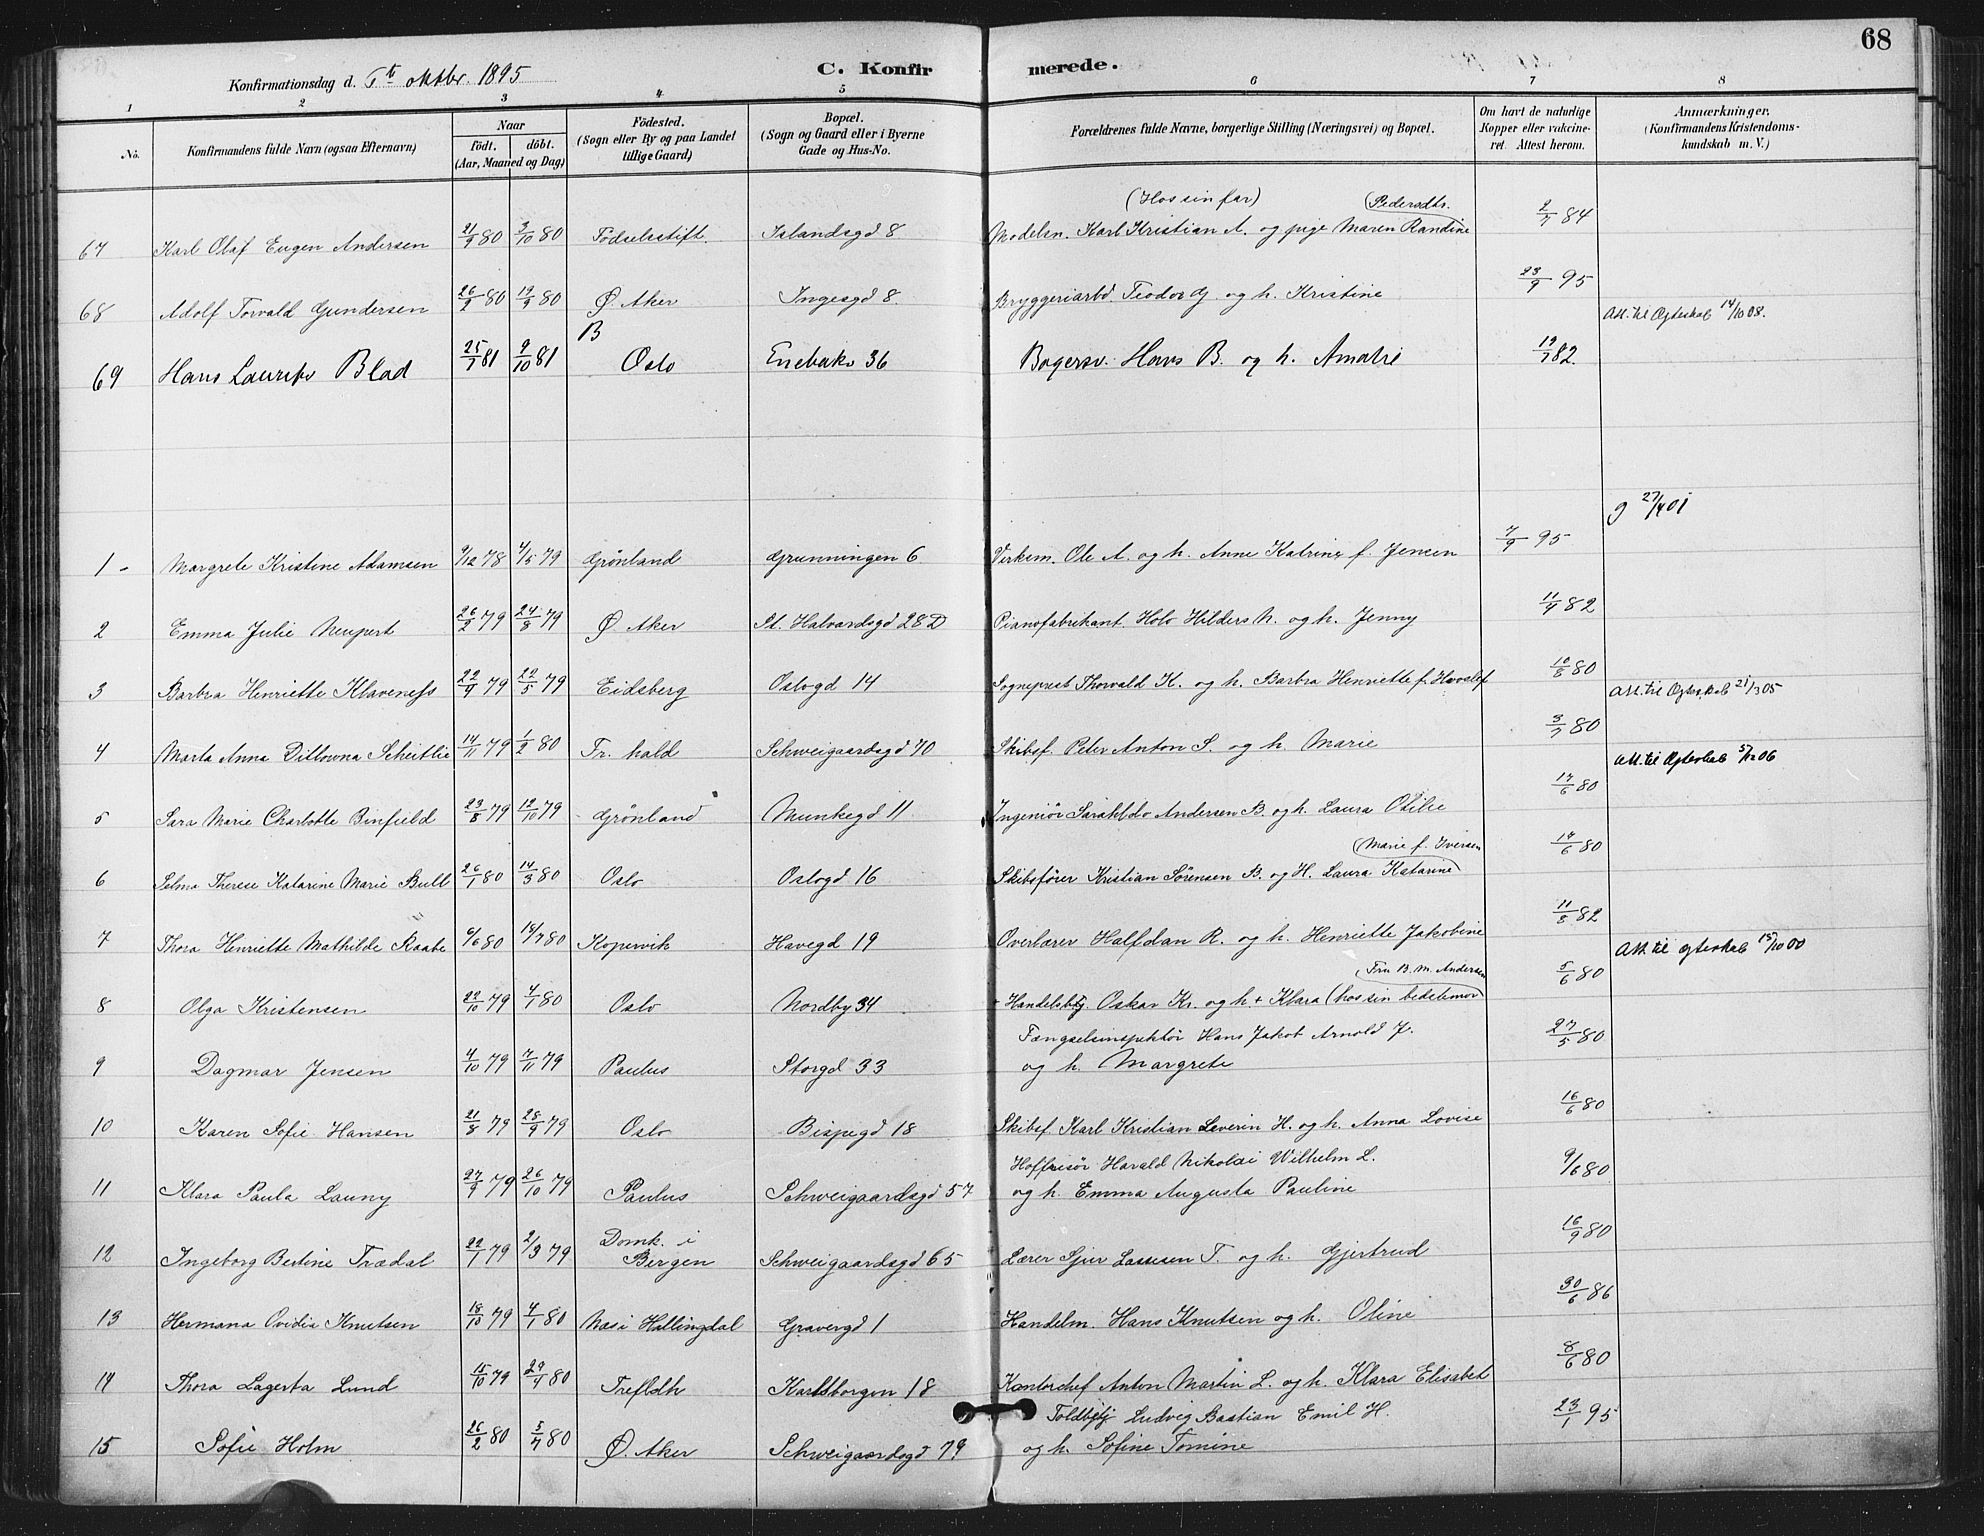 68
Konfirmationsdag d. oktbr. 1895 C. Konfirmerede.
1 2 3 4 5 6 7 8
No. Konfirmandens fulde Navn (ogsaa Efternavn) Naar födt. döbt. (Aar, Maaned og Dag) Födested. (Sogn eller By og paa Landet tillige Gaard) Bopæl. (Sogn og Gaard eller i Byerne Gade og Hus-No. Forældrenes fulde Navne, borgerlige Stilling (Næringsvei) og Bopæl. Om havt de naturlige Kopper eller vakcineret. Attest herom. Anmærkninger. (Konfirmandens Kristendomskundskab m. V.)
(Hos sin far) Pedersdtr.
67 Karl Olaf Eugen Andersen 21/9 80 3/10 80 Födselsstift. Islandsgd 8 Modelsn. Karl Kristian A. og pige Maren Randine 2/7 84
68 Adolf Torvald Gundersen 26/2 80 19/9 80 Ø. Aker Ingesgd 8. Bryggeriarbd Teodor G. og h. Kristine 23/9 95 Att. til Ægteskab 14/10 08.
B
69 Hans Laurits Blad 25/7 81 9/10 81 Oslo Enebakv 36 Bagersv. Hans B. og h. Amalie 19/7 82.
27/4 01
1 - Margrete Kristine Adamsen 9/12 78 4/5 79 Grönland Grunningen 6 Verksm. Ole A. og h. Anne Katrine f. Jensen 7/9 95
2 Emma Julie Neupert 26/2 79 24/8 79 Ø. Aker St. Halvardsgd 28 D Pianofabrikant Holv Hilders N. og h. Jenny 11/9 82
3 Barbra Henriette Klaveness 22/4 79 22/5 79 Eidsberg Oslogd 14 Sogneprest Thorvald K. og h. Barbra Henriette f. 10/8 80 Att. til Ægteskab 21/3 05
4 Marta Anna Scheitlie 14/11 79 1/2 80 Fr. hald Schweigaardsgd 70 Skibsf. Peter Anton S. og h. Marie 3/7 80 Att. til Ægteskab 5/12 06
5 Sara Marie Charlotte Binfield 23/8 79 12/10 79 Grönland Munkegd 11 Ingeniör Andersen B. og h. Laura Otilie 17/6 80
Marie f. Iversen
6 Selma Therese Katarine Marie Bull 26/1 80 14/3 80 Oslo Oslogd 16 Skibsförer Kristian Sörensen B. og H. Laura Katarine 14/6 80
7 Thora Henriette Mathilde Raabe 6/6 80 18/7 80 Kopervik Havegd 19 Overlærer Halfdan R. og h. Henriette Jakobine 11/8 82 Att. til Ægteskab 15/10 00
Fru B. M. Andersen
8 Olga Kristensen 22/10 79 4/1 80 Oslo Nordby 34 + Handelsbtj. Oskar Kr. og h. + Klara (hos sin bedstemor) 5/6 80
Fængselsinspektör Hans Jakob Arnold J.
9 Dagmar Jensen 4/10 79 7/11 79 Paulus Storgd 33 og h. Margrete 27/5 80
10 Karen Sofie Hansen 21/8 79 28/9 79 Oslo Bispegd 18 Skibsf. Karl Kristian Severin H. og h. Anna Lovise 16/6 80
Hoffrisör Harald Nikolai Wilhelm L.
11 Klara Paula Launy 27/9 79 26/10 79 Paulus Schweigaardsgd 57 og h. Emma Augusta Pauline 9/6 80
12 Ingeborg Bertine Trædal 22/1 79 2/3 79 Domk. i Bergen Schweigaardsgd 65 Lærer Sjur Lassesen T. og h. Gjertrud 16/9 80
13 Hermana Ovidia Knutsen 18/10 79 4/1 80 Nes i Hallingdal Gravergd 1 Handelm. Hans Knutsen og h. Oline 30/6 86
14 Thora Lagerta Lund 15/10 79 29/4 80 Trefldh Karlsborgen 18 Kontorchef Anton Martin L. og h. Klara Elisabet 8/6 80
Toldbetj Ludvig Bastian Emil H.
15 Sofie Holm 26/2 80 5/7 80 Ø. Aker Schweigaardsgd 79 og h. Sofine Tomine 23/1 95